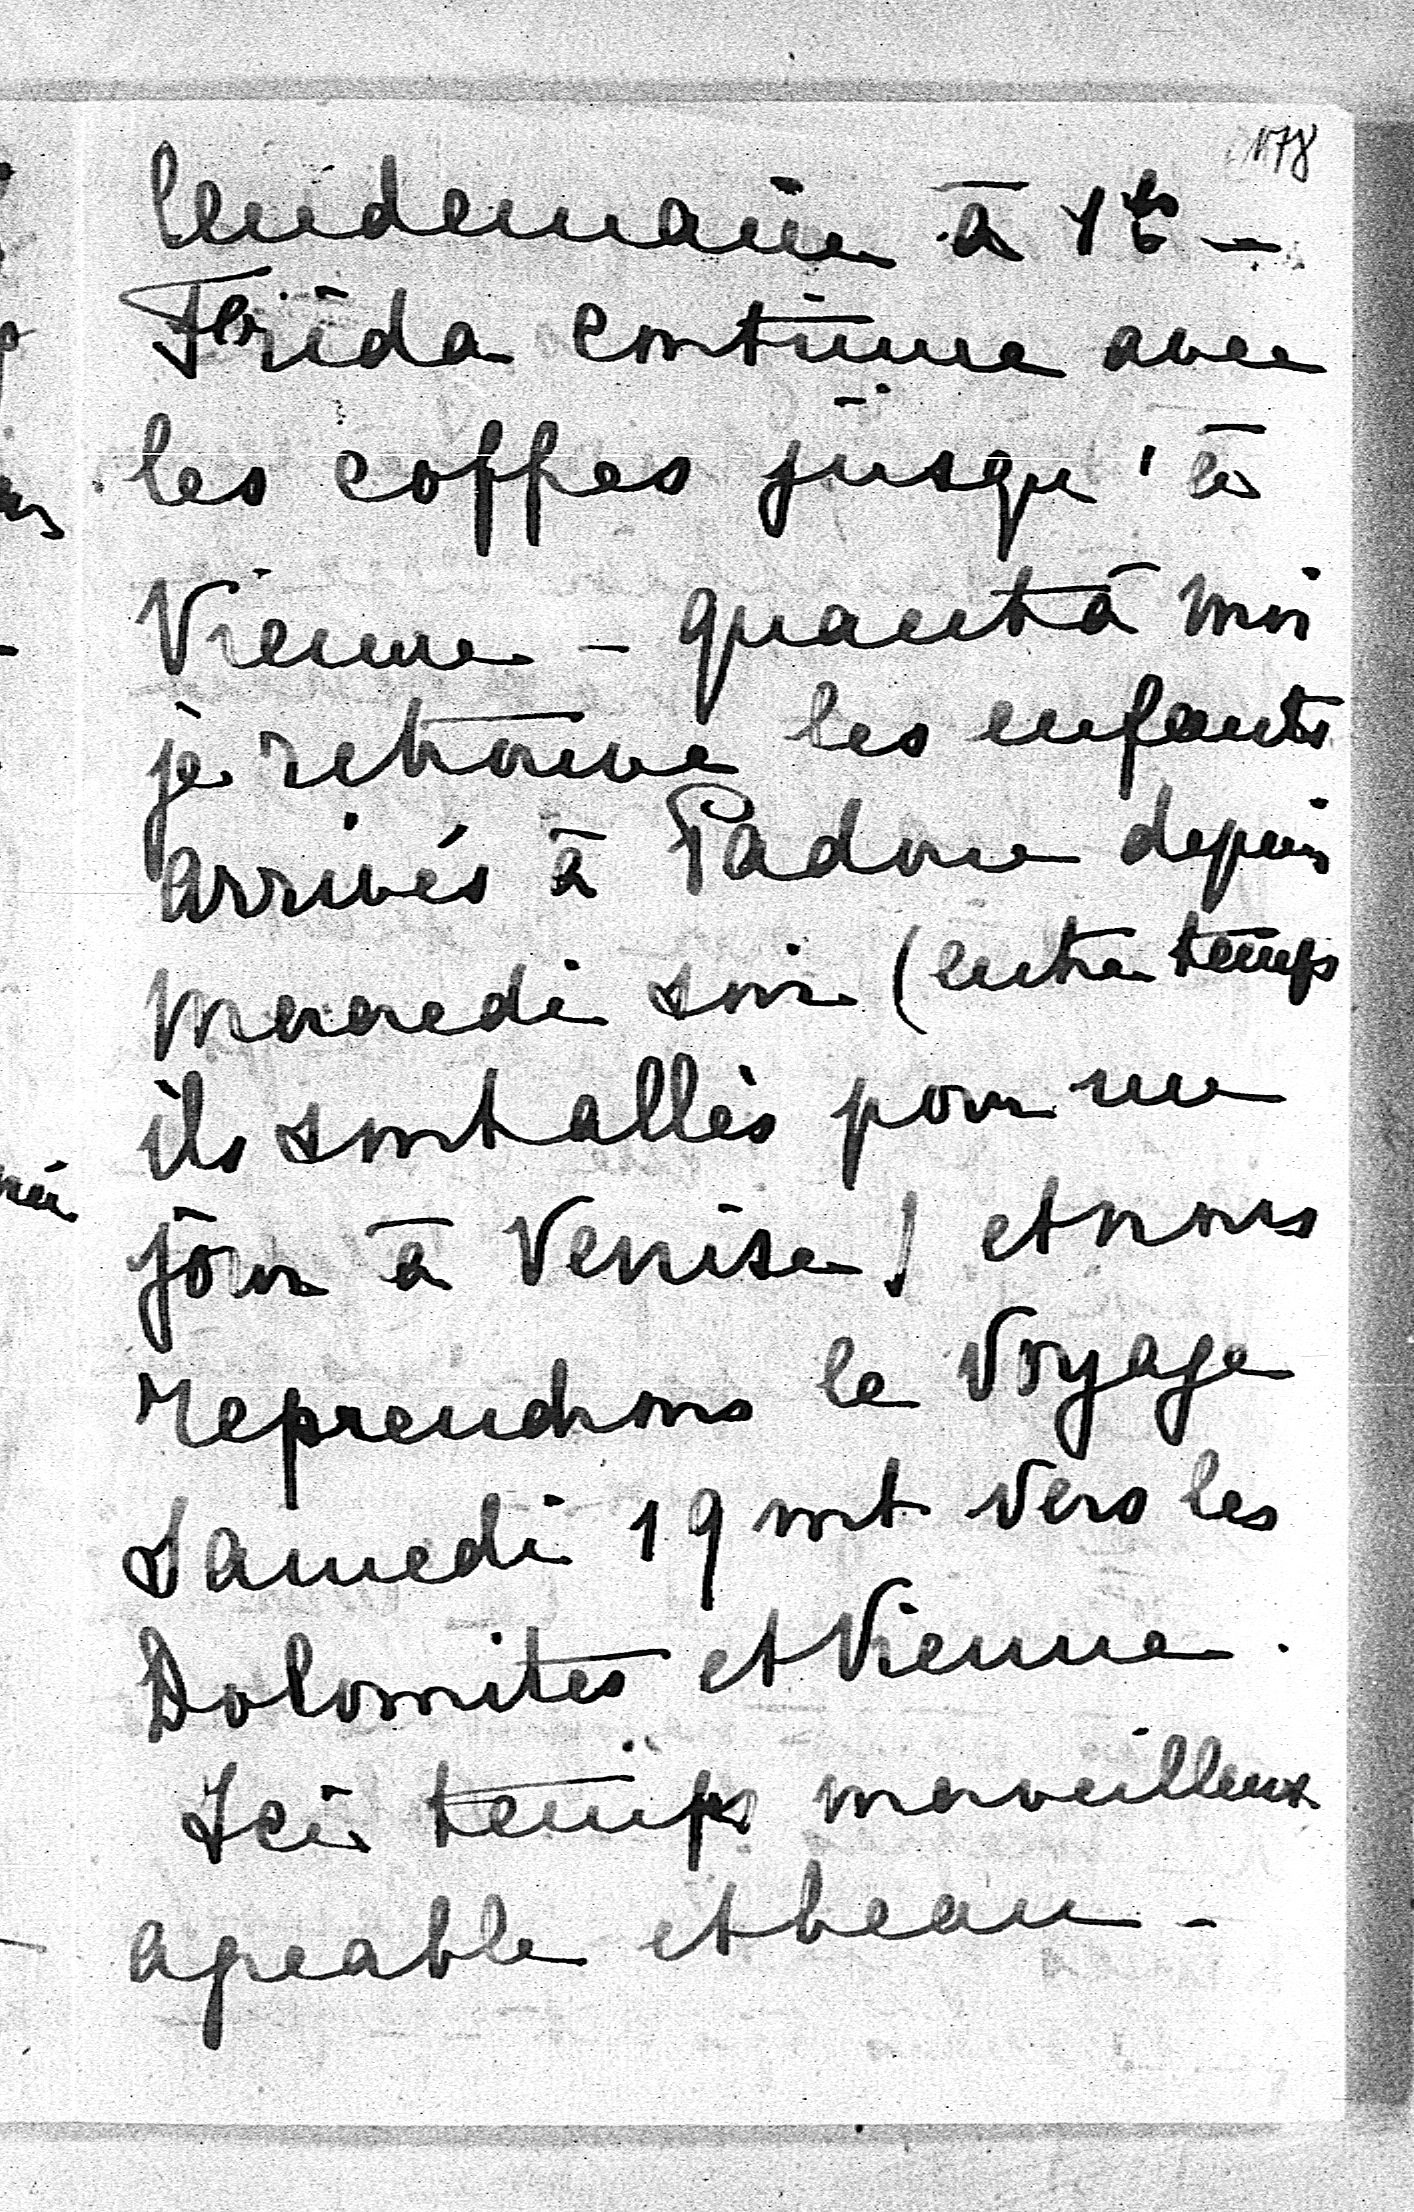 178
lendemain à 1h –
Frida continue avec
les coffres jusqu'à
Vienne – quant à moi
je retrouve les enfants
arrivés à Padoue depuis
mercredi soir (entre temps
ils sont allés pour un
jour à Venise) et nous
reprendrons le voyage
Samedi 19 vers les
Dolomites et Vienne.
Ici temps merveilleux
agréable et beau –